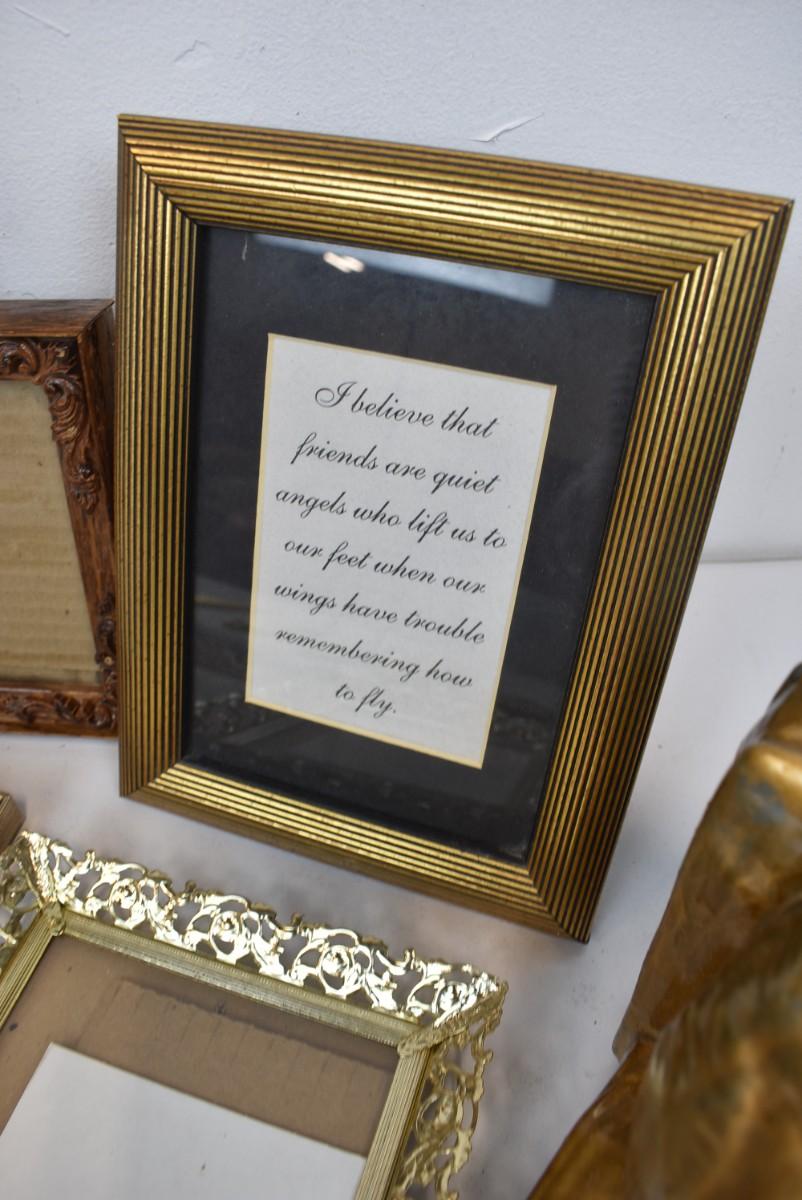 I believe that
friends are quiet
angels who lift us to
our feet when our
wings have trouble
remembering how
to fly.